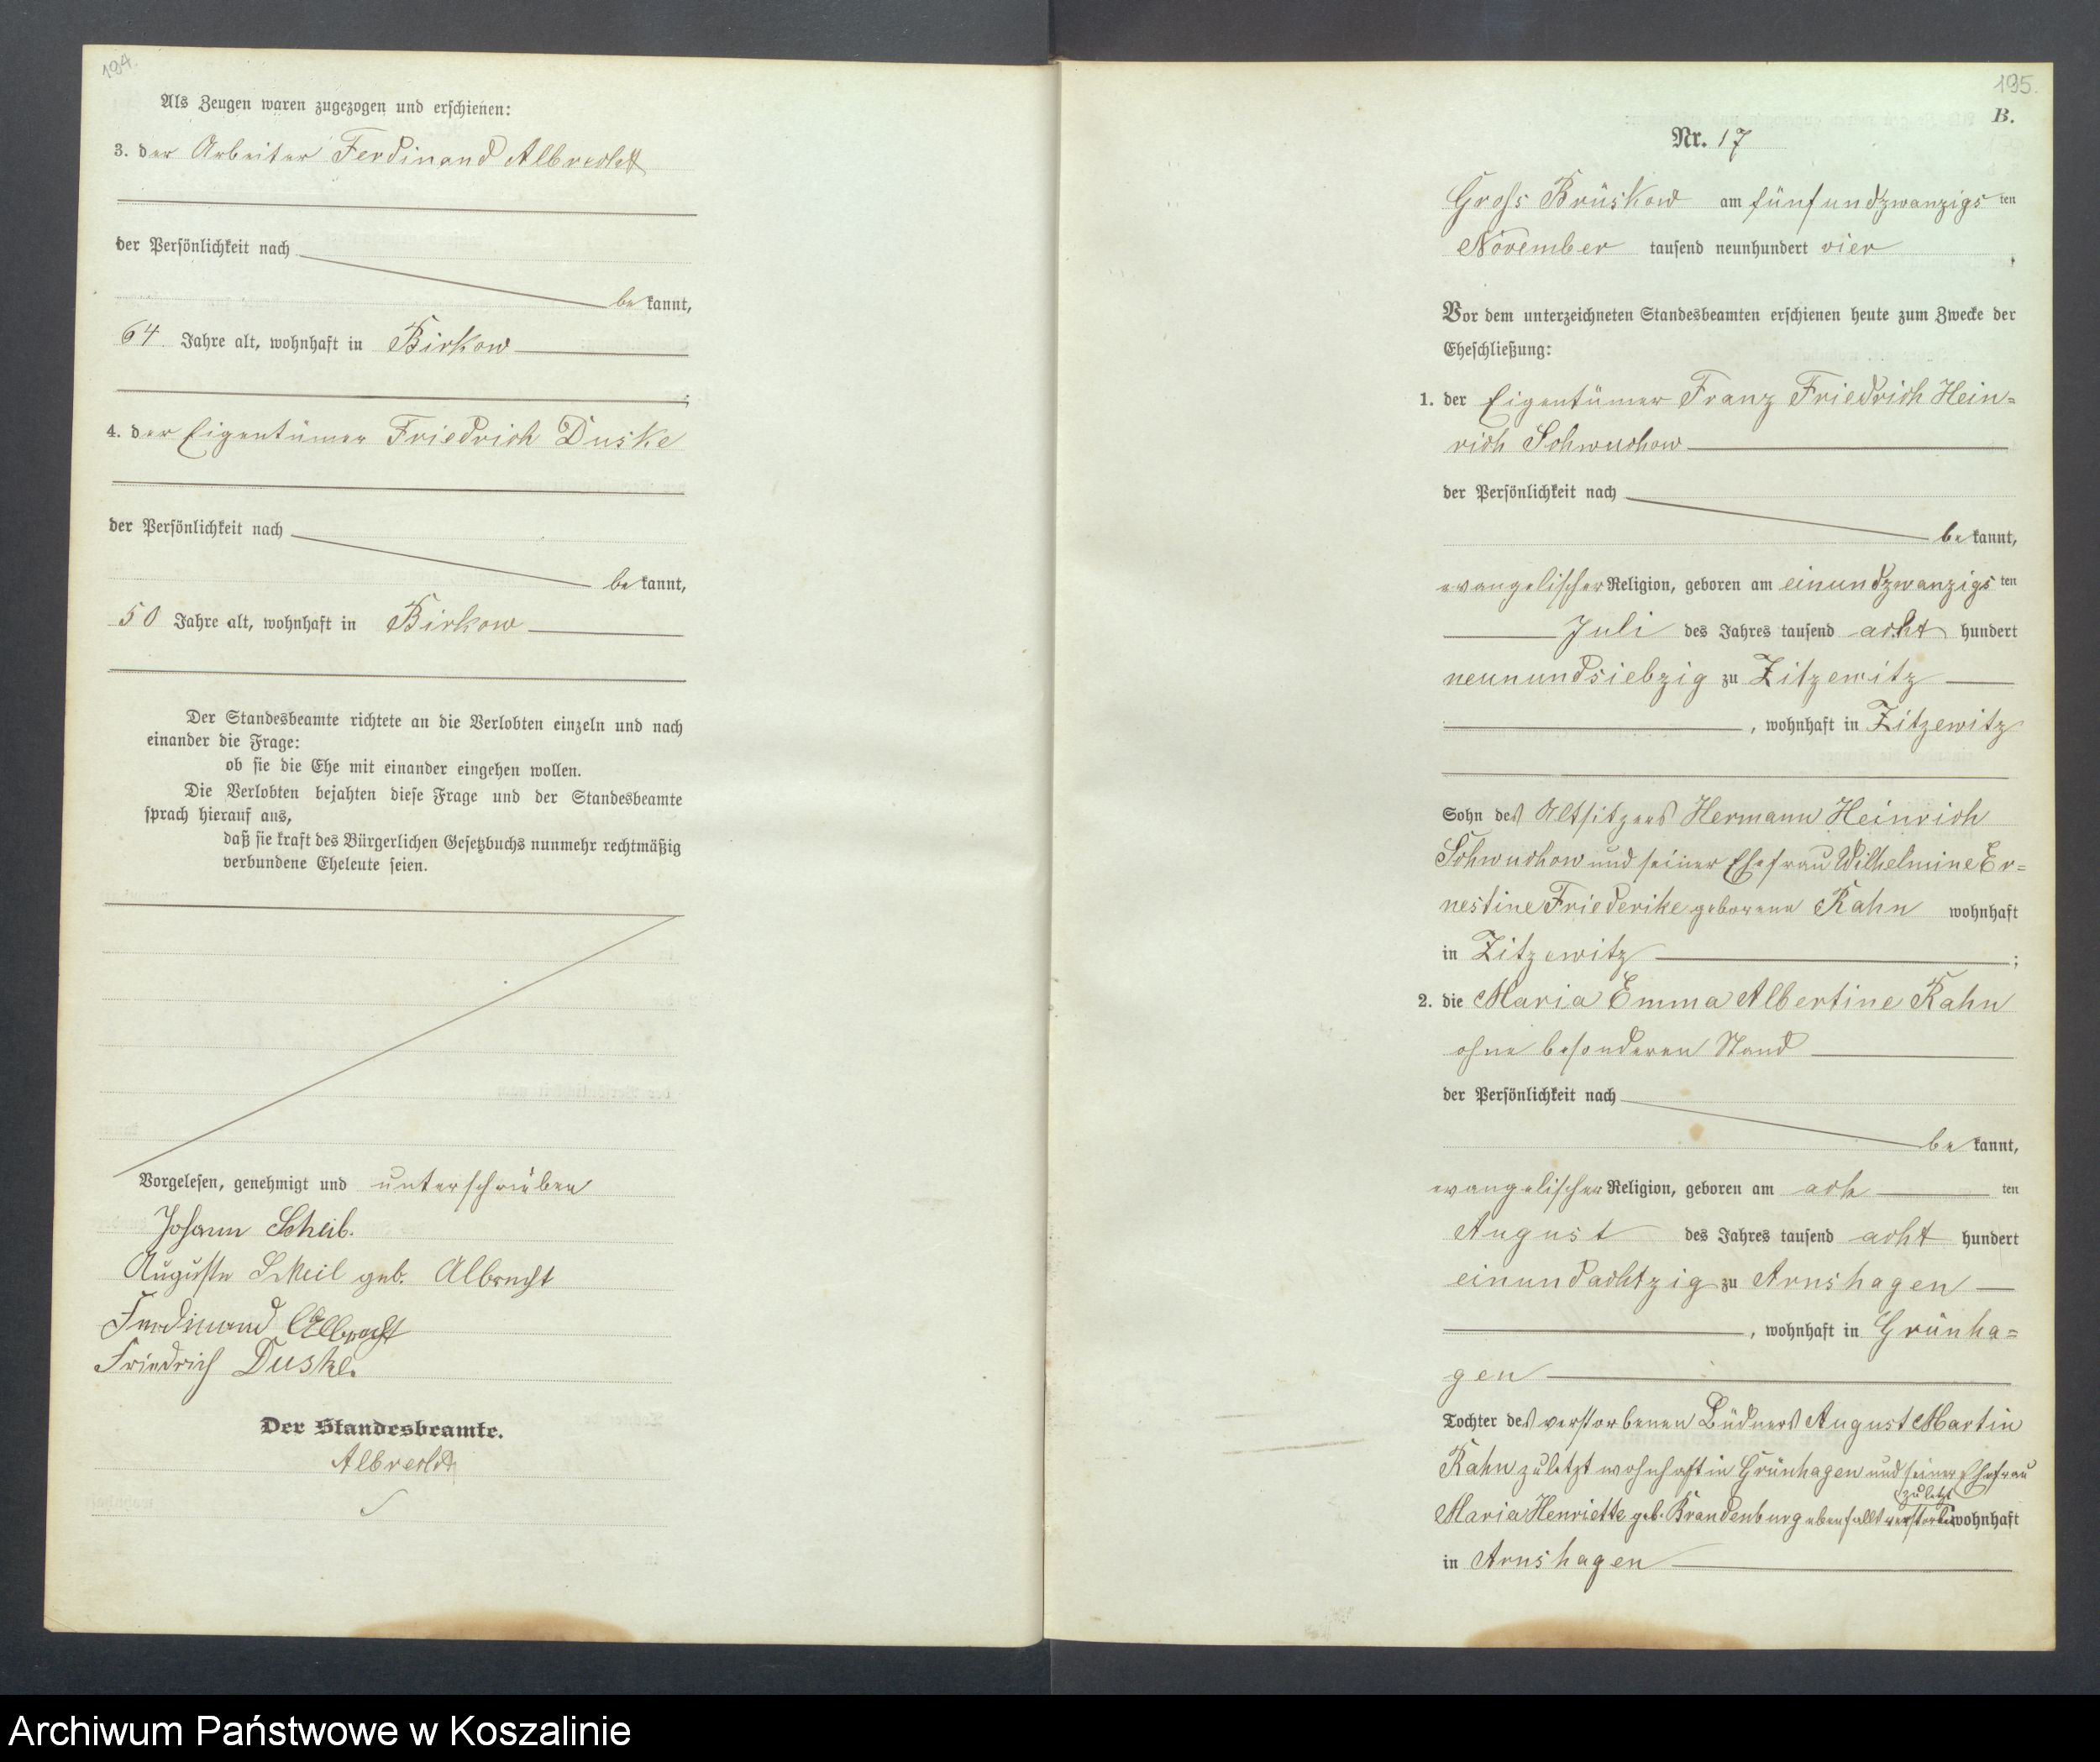 194.
Als Zeugen waren zugezogen und erschienen:
3. der Arbeiter Ferdinand Albrecht
der Persönlichkeit nach
be kannt,
64 Jahre alt, wohnhaft in Birkow
4. der Eigentümer Friedrich Duske
der Persönlichkeit nach
be kannt,
50 Jahre alt, wohnhaft in Birkow
Der Standesbeamte richtete an die Verlobten einzeln und nach
einander die Frage:
ob sie die Ehe mit einander eingehen wollen.
Die Verlobten bejahten diese Frage und der Standesbeamte
sprach hierauf aus,
daß sie kraft des Bürgerlichen Gesetzbuchs nunmehr rechtmäßig
verbundene Eheleute seien.
Vorgelesen, genehmigt und unterschrieben
Johann
Auguste geb. Albrecht
Ferdinand Albrecht
Friedrich Duske.
Der Standesbeamte.
Albrecht
195.
B.
Nr. 17
Gross Brüskow am fünfundzwanzigs ten
November tausend neunhundert vier
Vor dem unterzeichneten Standesbeamten erschienen heute zum Zwecke der
Eheschließung:
1. der Eigentümer Franz Friedrich Hein=
rich Schwuchow
der Persönlichkeit nach
be kannt,
evangelischer Religion, geboren am einundzwanzigs ten
Juli des Jahres tausend acht hundert
neunundsiebzig zu Zitzewitz
, wohnhaft in Zitzewitz
Sohn des Altsitzers Hermann Heinrich
Schwuchow und seiner Ehefrau Wilhelmine Er=
nestine Friederike geborene Rahn wohnhaft
in Zitzewitz ;
2. die Maria Emma Albertine Rahn
ohne besonderen Stand
der Persönlichkeit nach
be kannt,
evangelischer Religion, geboren am ach ten
August des Jahres tausend acht hundert
einundachtzig zu Arnshagen
, wohnhaft in Grünha=
gen
Tochter des verstorbenen Büdners August Martin
Rahn zuletzt wohnhaft in Grünhagen und seiner Ehefrau
zuletzt
Maria Henriette geb. Brandenburg ebenfalls verstorben wohnhaft
in Arnshagen
Archiwum Państwowe w Koszalinie